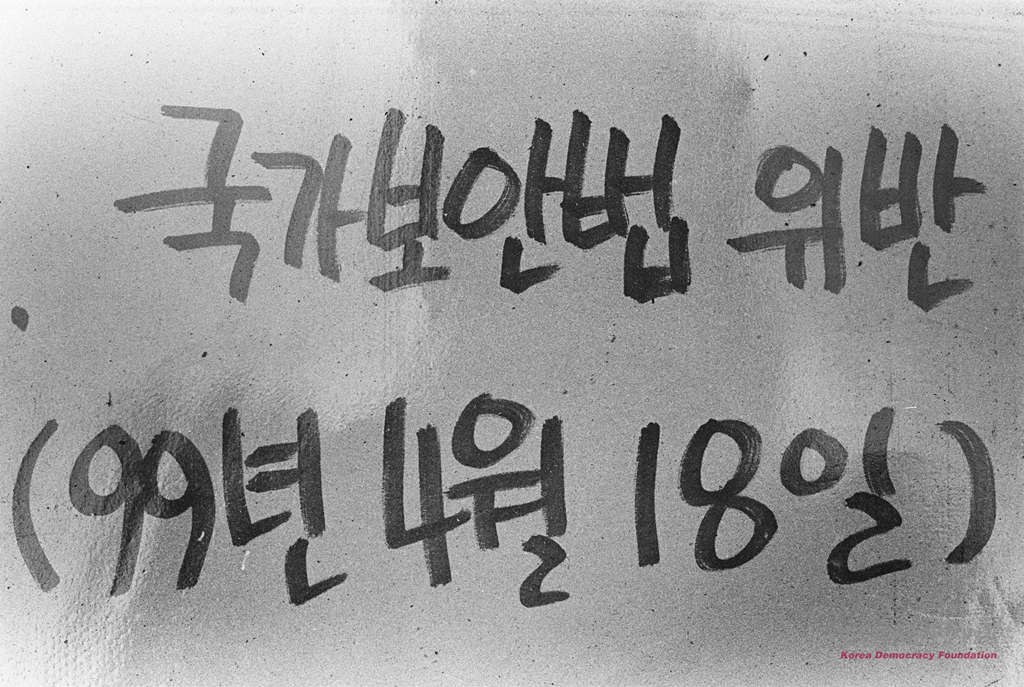 국가보안법 위반
(99년 4월 18일)
Korea Democracy Foundation